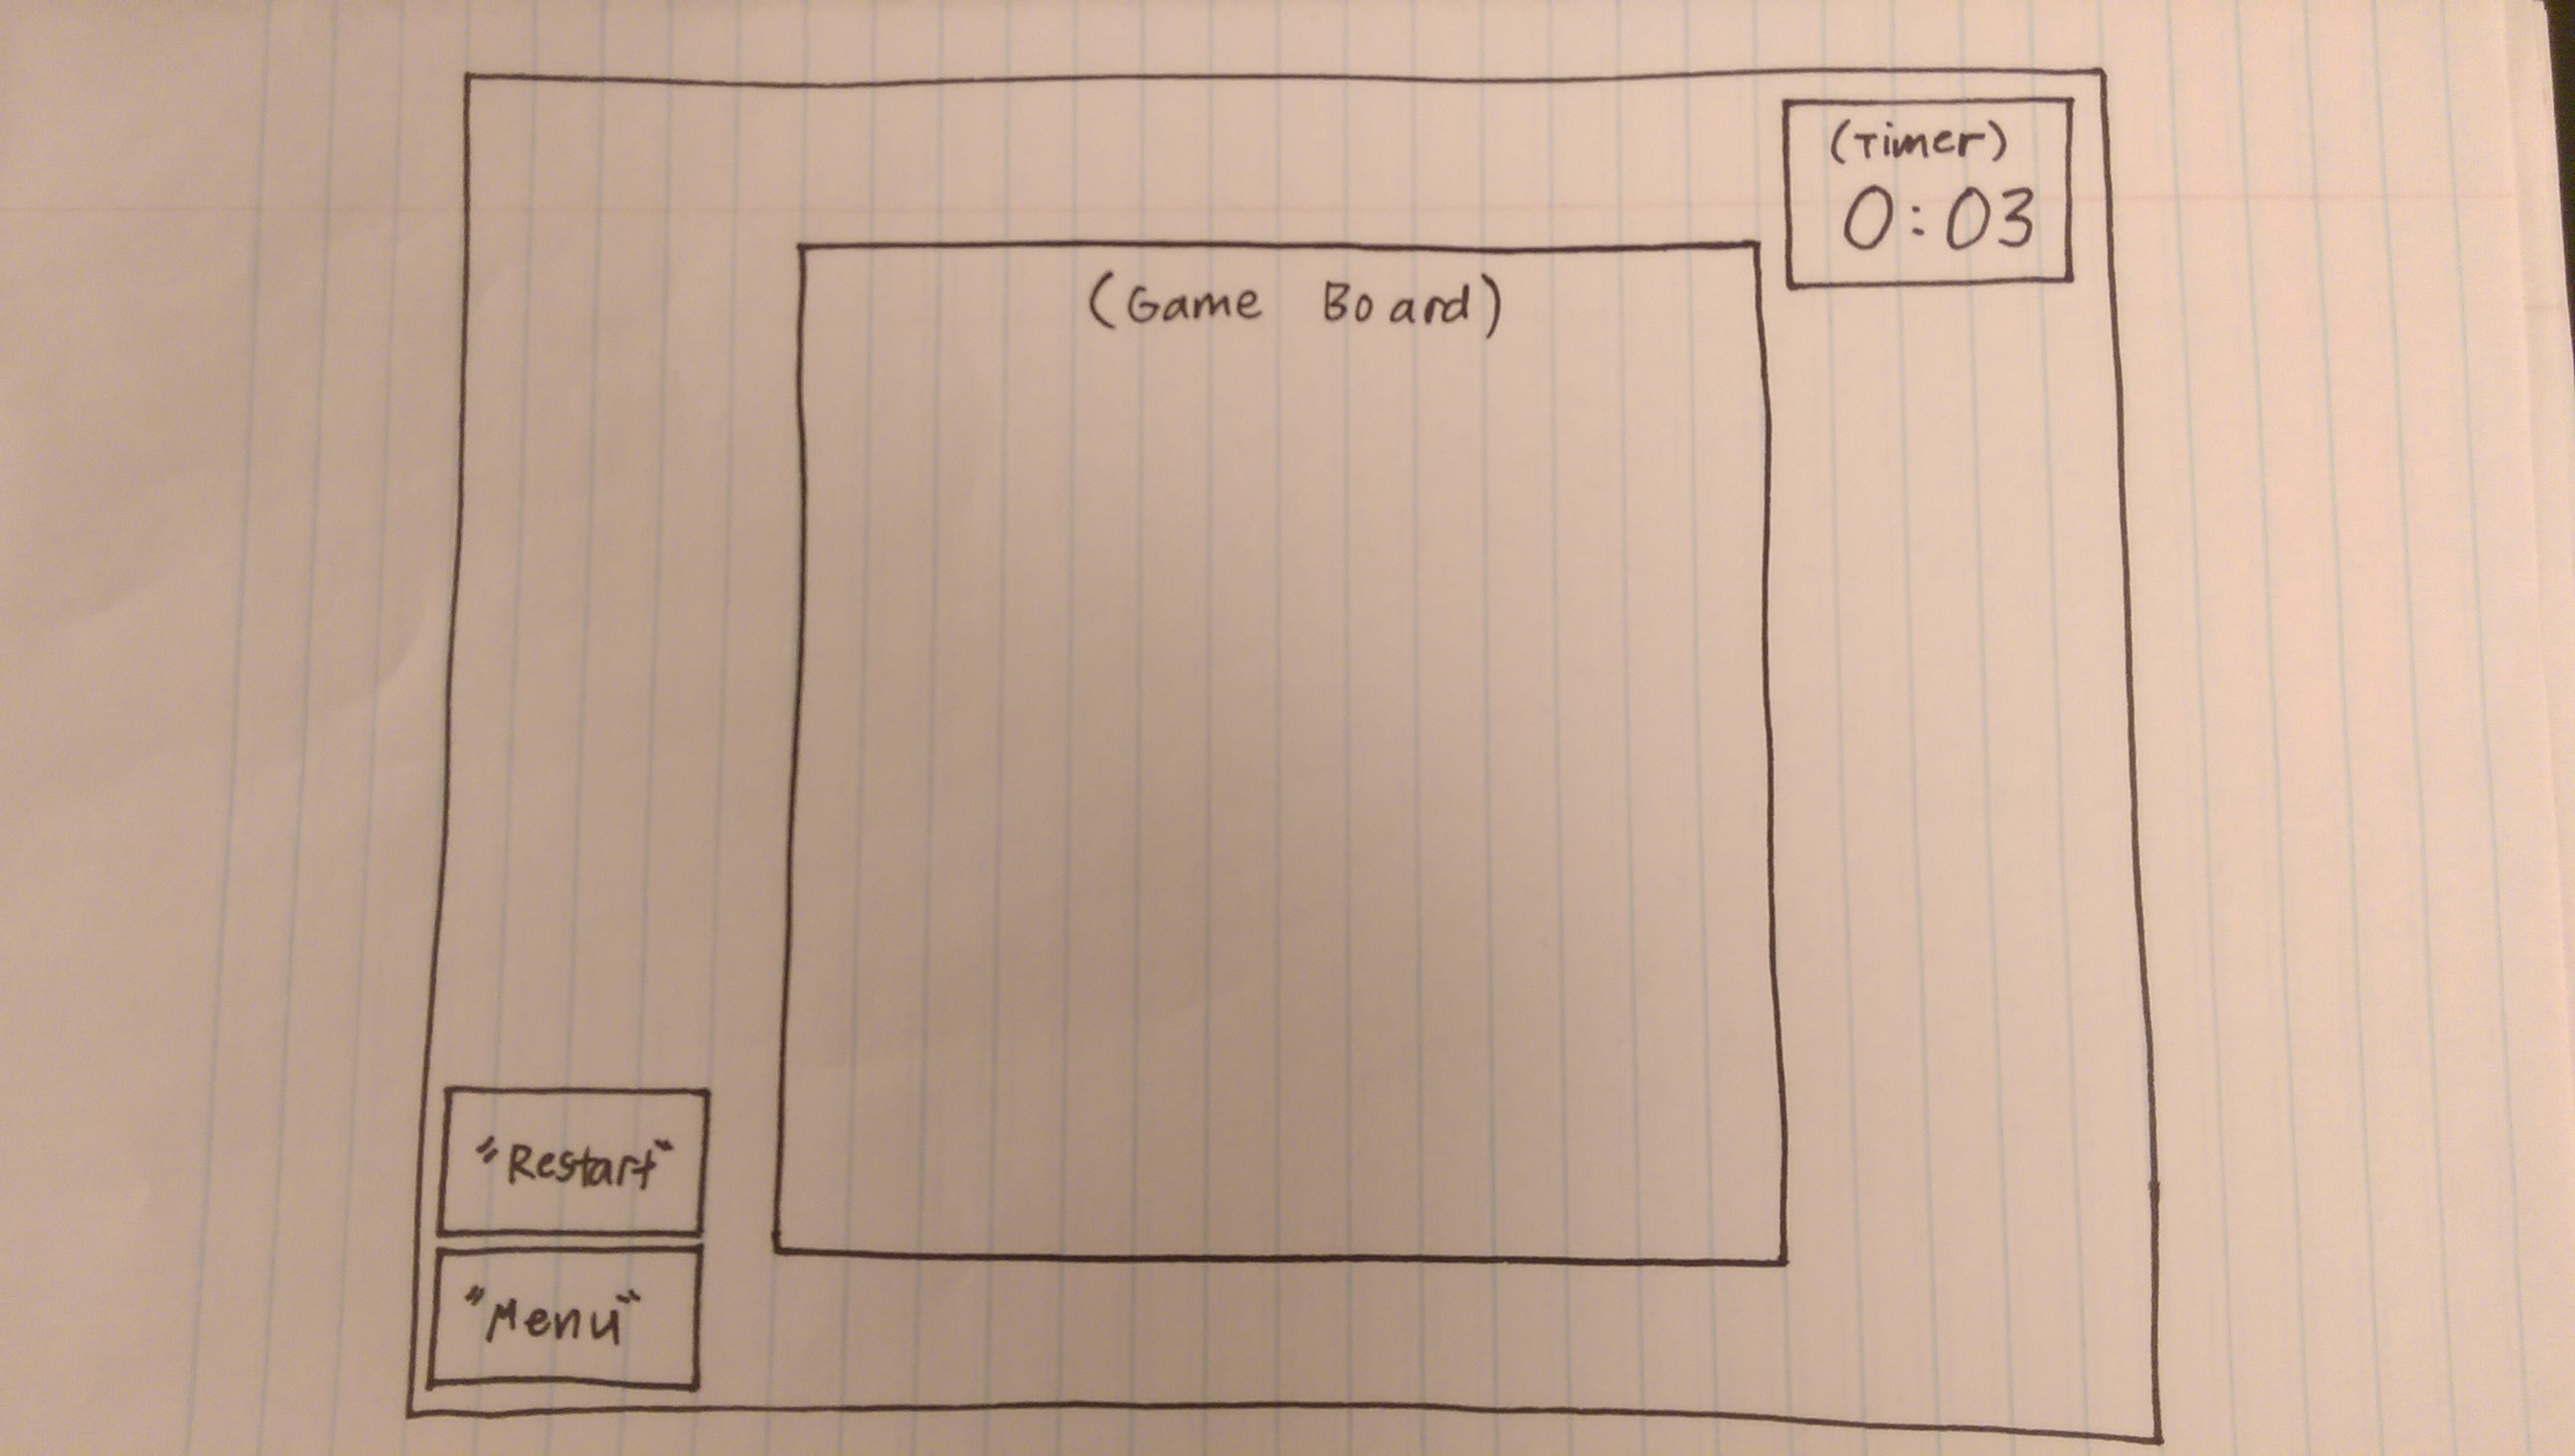 (Timer)
0:03
(Game Board)
"Restart"
"Menu"